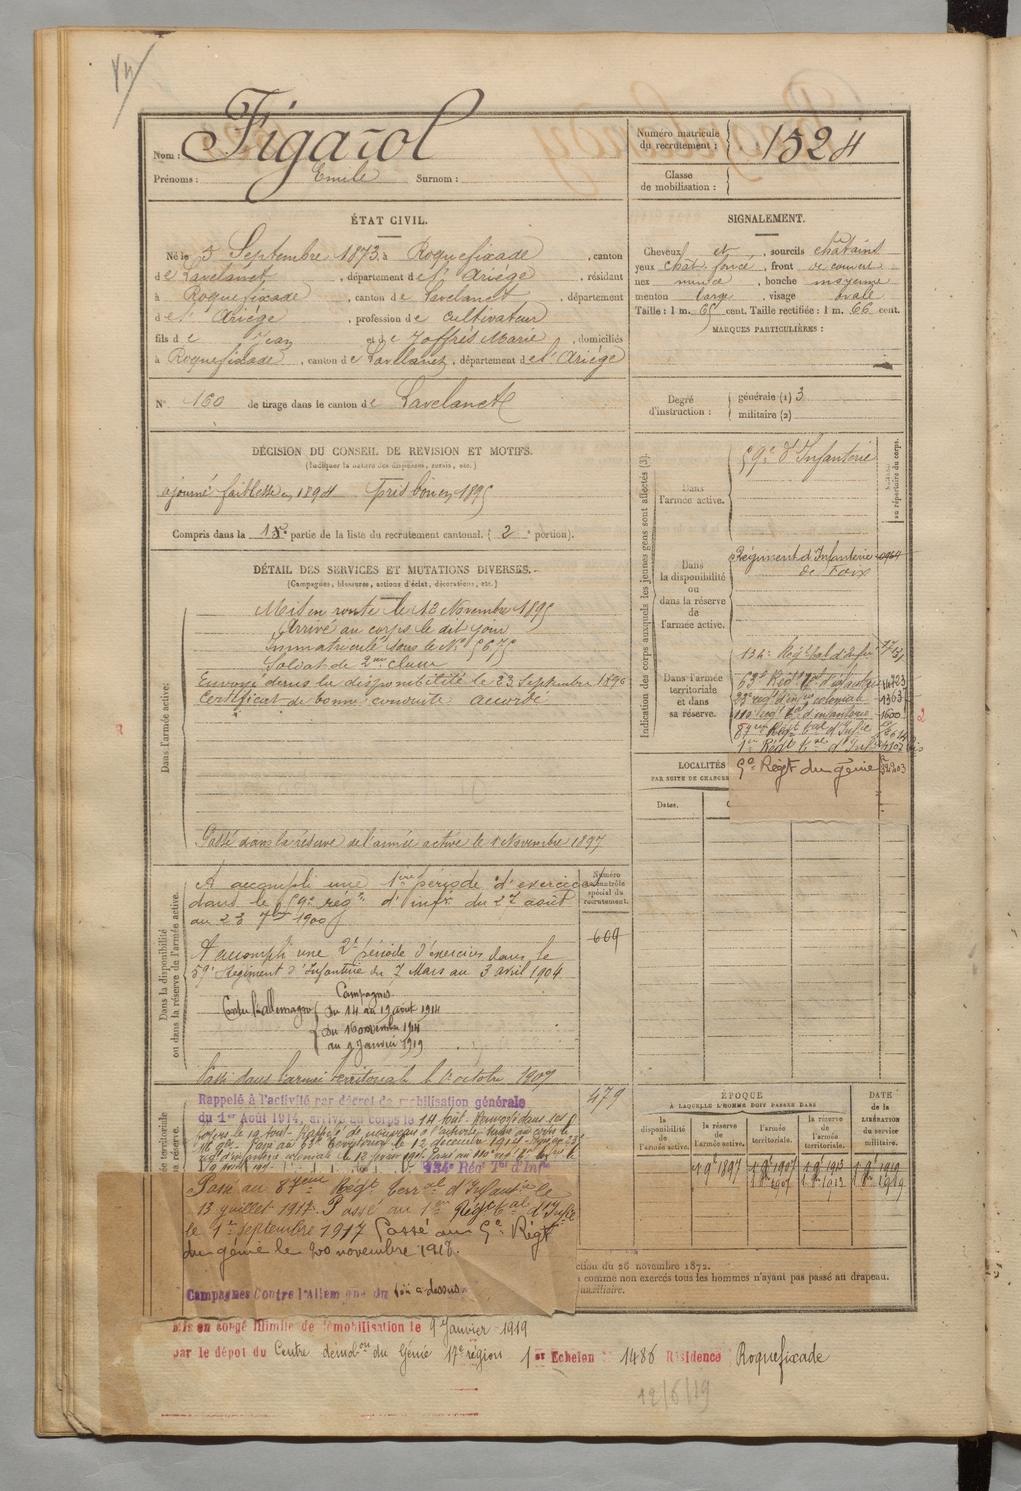 Nom : Figarol
Prénoms : Emile Surnom :
Numéro matricule du recrutement : 1524
Classe de mobilisation :
ÉTAT CIVIL.
Né le 5 Septembre 1873, à Roquefixade, canton
de Lavelanet, département de l'Ariège, résidant
à Roquefixade, canton de Lavelanet, département
de l'Ariège, profession de cultivateur
fils de Jean et de Joffrès Marie, domiciliés
à Roquefixade, canton de Lavelanet, département de l'Ariège
N° 160 de tirage dans le canton de Lavelanet
SIGNALEMENT.
Cheveux et sourcils châtains
yeux chât foncé, front découvert
nez mince, bouche moyenne
menton large, visage ovale
Taille : 1 m. 65 cent. Taille rectifiée : 1 m. 66 cent.
MARQUES PARTICULIÈRES :
Degré d'instruction : générale (1) 3
militaire (2)
DÉCISION DU CONSEIL DE REVISION ET MOTIFS.
(Indiquer la nature des dispenses, sursis, etc.)
ajourné faiblesse en 1894 Pris bon en 1895
Compris dans la 1re partie de la liste du recrutement cantonal. (2e portion).
DÉTAIL DES SERVICES ET MUTATIONS DIVERSES.
(Campagnes, blessures, actions d'éclat, décorations, etc.)
Dans l'armée active.
Mis en route le 13 Novembre 1895
Arrivé au corps le dit jour
Immatriculé sous le N° 5675
Soldat de 2me classe
Envoyé dans la disponibilité le 23 Septembre 1896
Certificat de bonne conduite accordé
Passé dans la réserve de l'armée active le 1 Novembre 1897
Dans la disponibilité ou dans la réserve de l'armée active.
A accompli une 1ère période d'exercices
dans le 59e régt d'infie du 27 août
au 23 7bre 1900
A accompli une 2e période d'exercices dans le
59e Régiment d'Infanterie du 7 Mars au 3 avril 1904
Campagnes
Contre l'allemagne du 14 au 19 août 1914
Du 16 novembre 1914
au 9 janvier 1919
Passé dans l'armée territoriale le 1 octobre 1907
Numéro au contrôle spécial du recrutement.
609
479
Rappelé à l'activité par décret de mobilisation générale
du 1er Août 1914, arrivé au corps le 14 août. Renvoyé dans ses
foyers le 19 août.
134e Régt Tal d'Infie
Passé au 87eme Régt terral d'Infantie le
13 juillet 1917. Passé au 1er Régt tal d'Infie
le 1er septembre 1917 Passé au 9e Régt
du génie le 20 novembre 1918.
Campagnes Contre l'Allemagne du voir ci-dessus
Mis en congé illimité de démobilisation le 9 Janvier 1919
par le dépôt du Centre démobon du Génie 17e région 1er Echelon 1486 Résidence Roquefixade
12/6/19
Indication des corps auxquels les jeunes gens sont affectés (3).
Dans l'armée active.
59e d'Infanterie
au répertoire du corps.
Dans la disponibilité ou dans la réserve de l'armée active.
Régiment d'Infanterie
de Foix
Dans l'armée territoriale et dans sa réserve.
134e Régt tal d'Infie
63e Régt tal d'infanterie
23e régt d'infie coloniale
110e régt tal d'infanterie 1600
87eme Régt tal d'Infie
1er Régt tal d'Infie
9e Régt du génie
LOCALITÉS
PAR SUITE DE CHANGE
Dates.
ÉPOQUE
À LAQUELLE L'HOMME DOIT PASSER DANS
la disponibilité de l'armée active.
la réserve de l'armée active.
l'armée territoriale.
la réserve de l'armée territoriale.
DATE de la LIBÉRATION du service militaire.
ction du 26 novembre 1872.
comme non exercés tous les hommes n'ayant pas passé au drapeau.
auxiliaire.